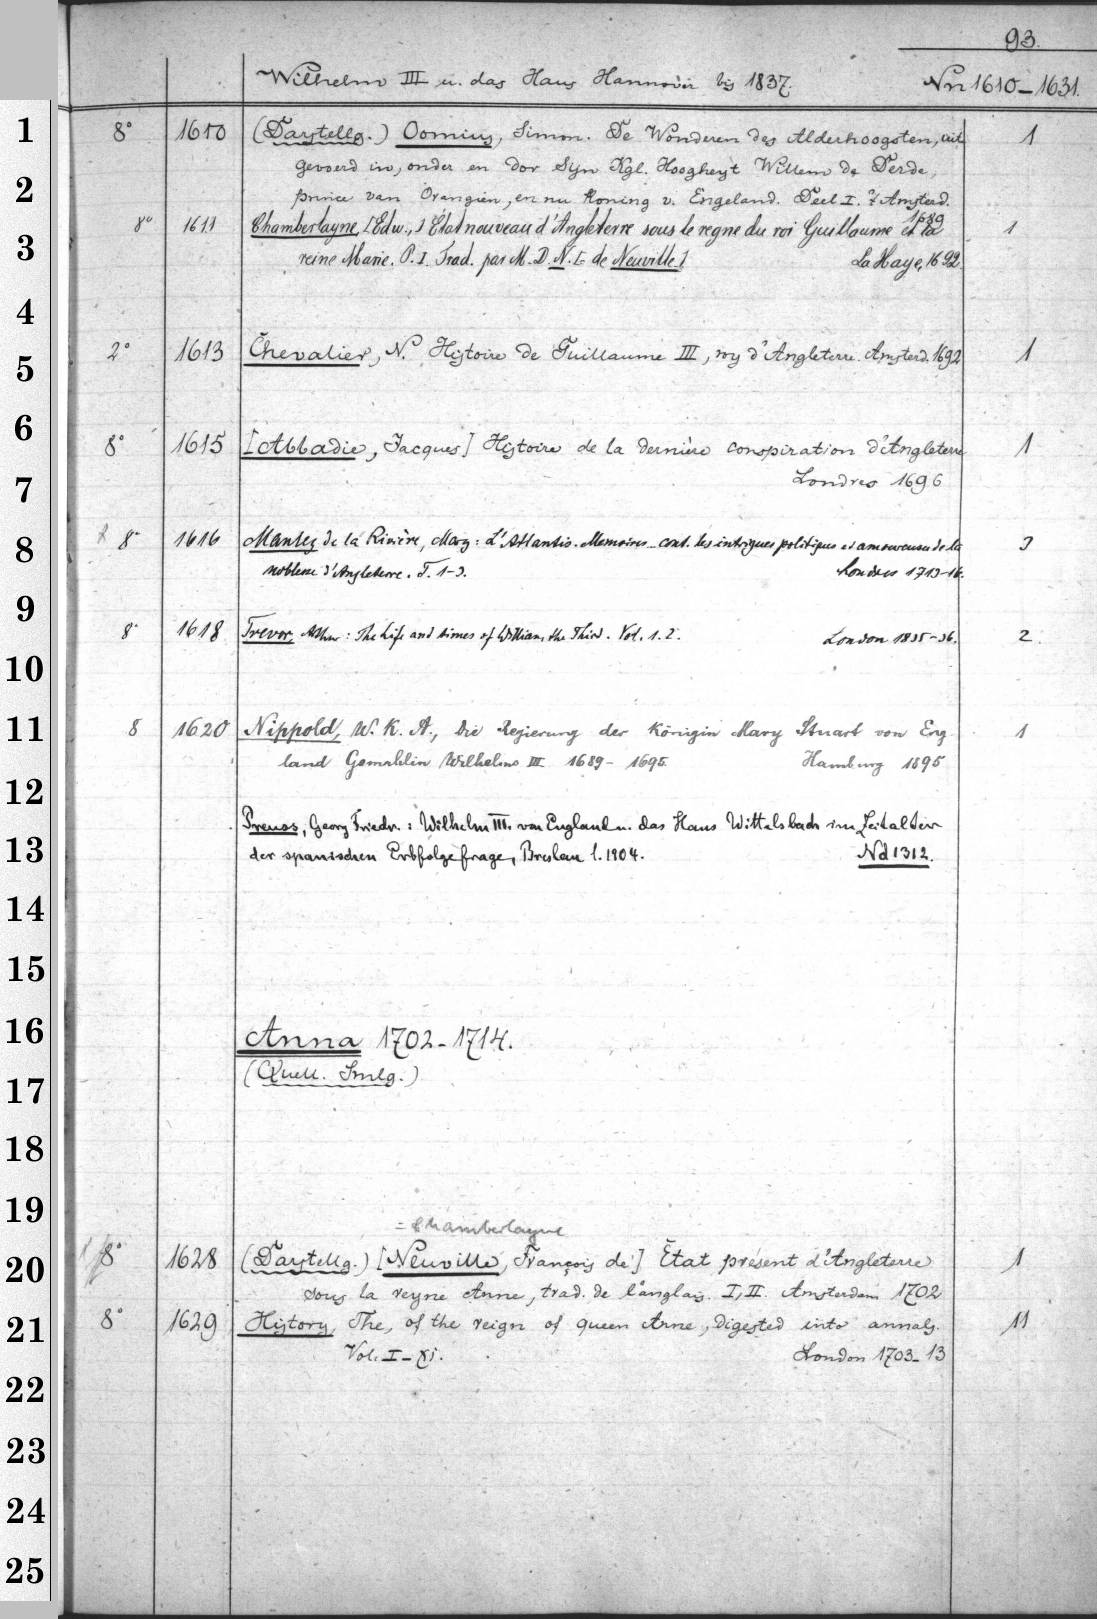 93.
Wilhelm III u. das Haus Hannover bis 1837. Nn 1610-1631.
1
8° 1610 (Darstellg.) Oomius, Simon. De Wonderen des Alderhoogsten, uit 1
2
gevoerd in, onder en dor Syn Kgl. Hoogheyt Willem de Derde,
prince van Orangien, en nu Koning v. Engeland. Deel I. 2/ Amsterd.
1689
3
8° 1611 Chamberlayne, [Edw., ] État nouveau d'Angleterre sous le regne du roi Guillaume et la 1
reine Marie. P. I. Trad. par M. D. N. [= de Neuville.] La Haye, 1692
4
5
2° 1613 Chevalier, N. Histoire de Guillaume III, roy d'Angleterre. Amsterd. 1692 1
6
8° 1615 [Abbadie, Jacques] Histoire de la dernière conspiration d'Angleterre 1
7
Londres 1696
8
8° 1616 Manley de la Rivière, Mary: L'Atlantis. Memoires cont. les intrigues politiques et amoureuses de la 3
noblesse d'Angleterre. T. 1-3. Londres 1713-16.
9
8° 1618 Trevor, Arthur: The Life and times of William the Third. Vol. 1. 2. London 1835-36. 2
10
11
8 1620 Nippold, W. K. A., Die Regierung der Königin Mary Stuart von Eng 1
land Gemahlin Wilhelms III 1689-1695. Hamburg 1895
12
Preuss, Georg Friedr.: Wilhelm III. von England u. das Haus Wittelsbach im Zeitalter
13
der spanischen Erbfolgefrage, Breslau 1. 1904. Nd 1312.
14
15
16
Anna 1702-1714.
(Quell. Smlg.)
17
18
19
= Chamberlayne
20
8° 1628 (Darstellg.) [Neuville, François de] État présent d'Angleterre 1
sous la reyne Anne, trad. de l'anglais. I, II. Amsterdam 1702
21
8° 1629 History, The, of the reign of queen Anne, digested into annals. 11
Vol. I-XI. London 1703-13
22
23
24
25